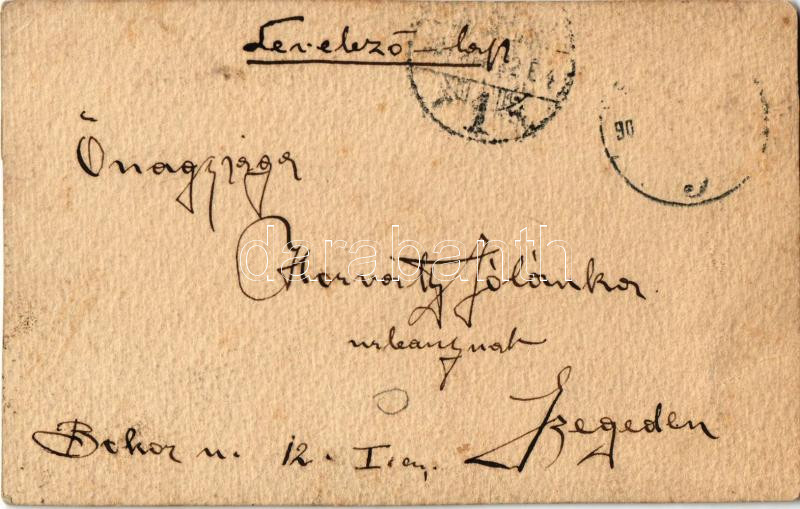 Levelező-lap
Őnagysága
Horváth Jolánka
urleánynak
Szegeden
Bokor u. 12. I. em.
90
1
darabanth